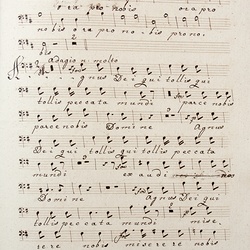 ora pro nobis ora pro
nobis ora pro no bis pro no.
bis
Adagio molto
Agnus Dei qui tollis qui
tollis peccata mundi parce nobis
parce nobis Domine Agnus
Dei qui tollis qui tollis peccata
mundi exaudi nos
Domine Agnus Dei qui
tollis peccata mundi mise,
rere nobis miserere nobis